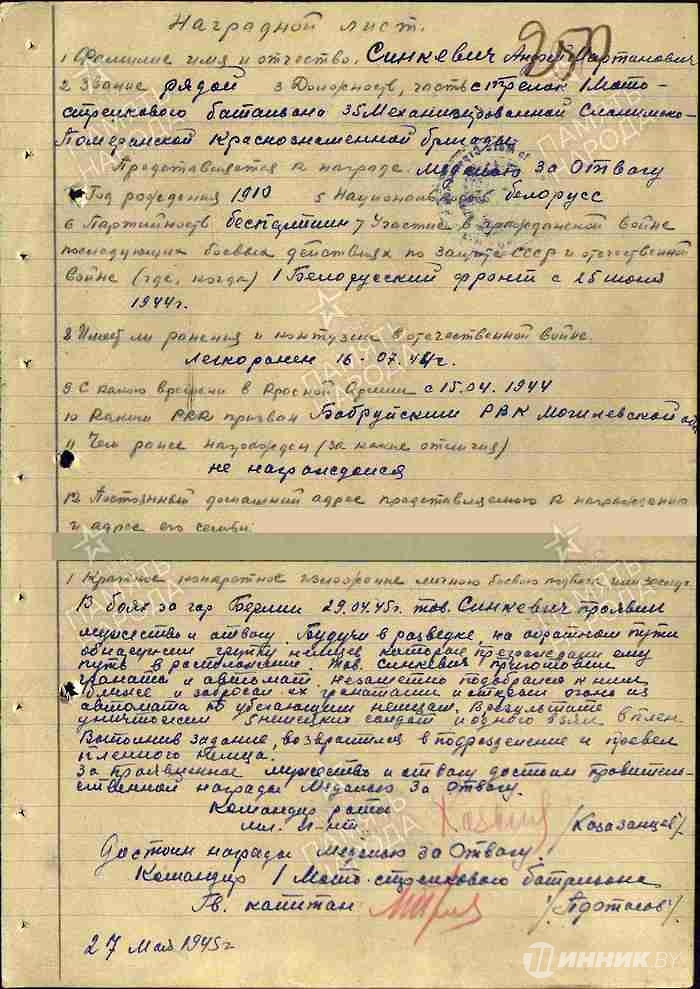 Наградной лист.
250
1 Фамилие имя и отчество. Синкевич Андрей Мартанович
2 Звание рядой 3 Должность, часть стрелок 1 Мото-
стрелкового батальона 35 Механизированной Слонимско-
Померанской Краснознаменной бригады
Представляется к награде медалью За Отвагу
Год рождения 1910 5 Национальность белорусс
6 Партийность беспартиин 7 Участие в гражданской войне
последующих боевых действиях по защите СССР и отечественной
войне (где, когда) 1 Белорусский фронт с 25 июня
1944г.
8 Имеет ли ранения и контузии в отечественной войне.
Легкоранен 16-07.44г.
9 С какого времени в Красной Армии с 15.04.1944
10 Каким РВК призван Бобруйским РВК Могилевской обл
11 Чем ранее награжден (за какие отличия)
не награждался
12 Постоянный домашний адрес представляемого к награждению
и адрес его семьи
1 Краткое конкретное изложение личного боевого подвига или заслуг
В боях за гор Берлин 29.04.45г. тов. Синкевич проявил
мужество и отвагу. Будучи в разведке, на обратном пути
обнаружил группу немцев которые преграждали ему
путь в расположение. Тов. Синкевич приготовил
гранаты и автомат незаметно подобрался к ним
ближе и забросал их гранатами и открыл огонь из
автомата по убегающим немцам. В результате
уничтожил 5 немецких солдат и одного взял в плен
Выполнив задание, возвратился в подразделение и провел
пленного немца.
За проявленное мужество и отвагу достоин правитель-
ственной награды Медалью За Отвагу.
Командир роты
мл. л-нт /Казазанцев/
Достоин награды медалью За Отвагу.
Командир 1 Мото-стрелкового батальона
Гв. капитан /Адотасов/
27 Мая 1945г
ПАМЯТЬ НАРОДА
ИННИК.BY